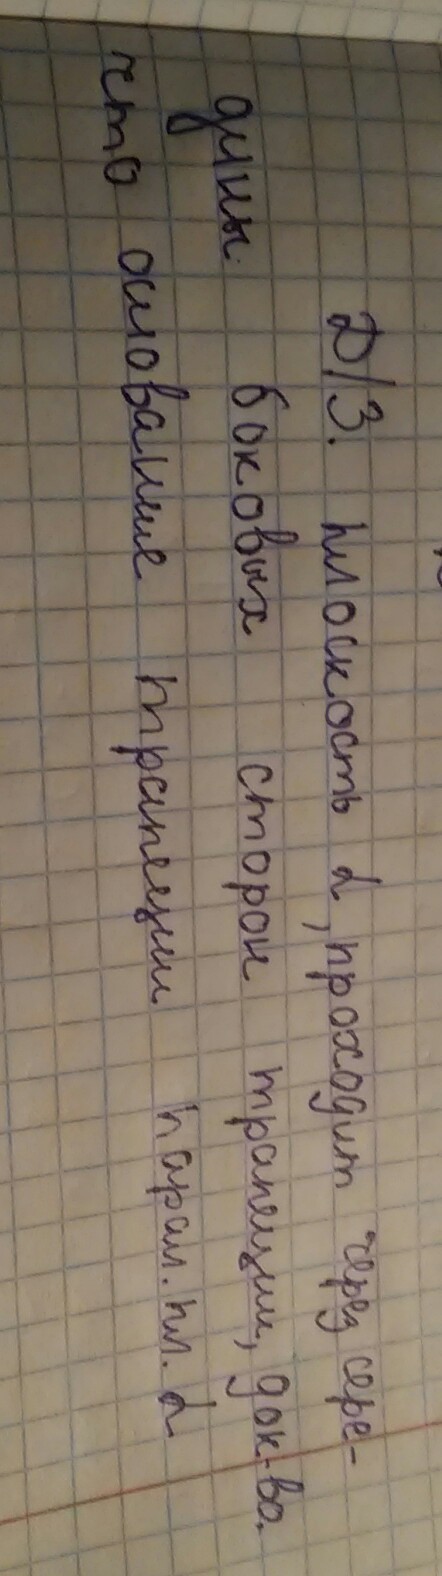 Д/З. Плоскость α, проходит через сере-
дины боковых сторон трапеции, док-во,
что основание трапеции парал. пл. α